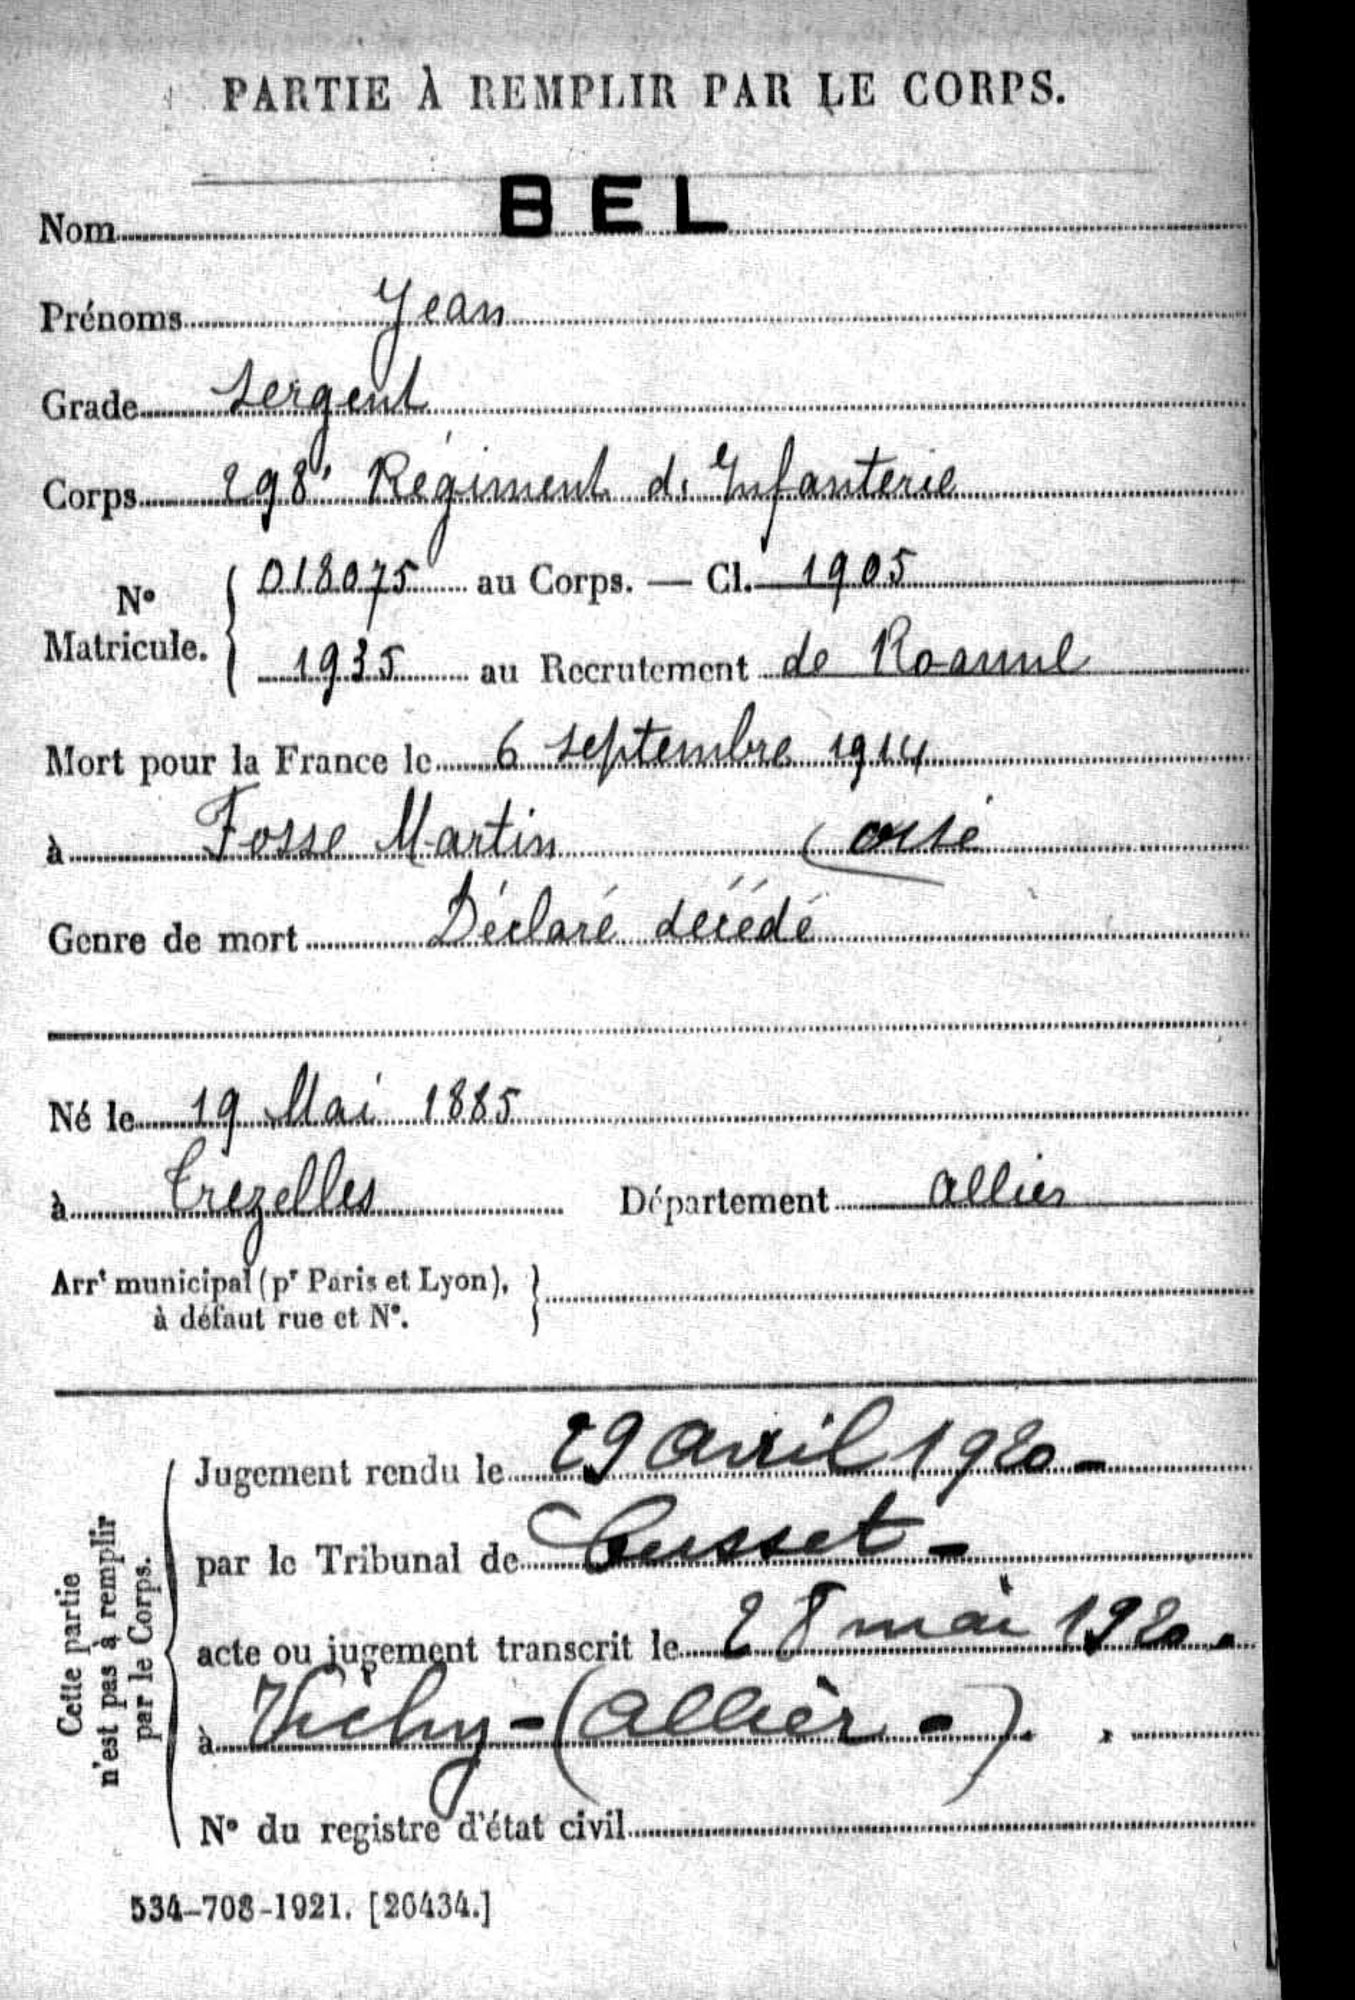 PARTIE À REMPLIR PAR LE CORPS.
Nom BEL
Prénoms Jean
Grade Sergent
Corps 298e Régiment d'Infanterie
No Matricule. 018075 au Corps. — Cl. 1905
1935 au Recrutement de Roanne
Mort pour la France le 6 septembre 1914
à Fosse Martin (Oise
Genre de mort Déclaré décédé
Né le 19 Mai 1885
à Trezelles Département Allier
Arrt municipal (pr Paris et Lyon), à défaut rue et No.
Cette partie n'est pas à remplir par le Corps.
Jugement rendu le 29 avril 1920 -
par le Tribunal de Cusset -
acte ou jugement transcrit le 28 mai 1920.
à Vichy - (Allier - )
No du registre d'état civil
534-708-1921. [26434.]